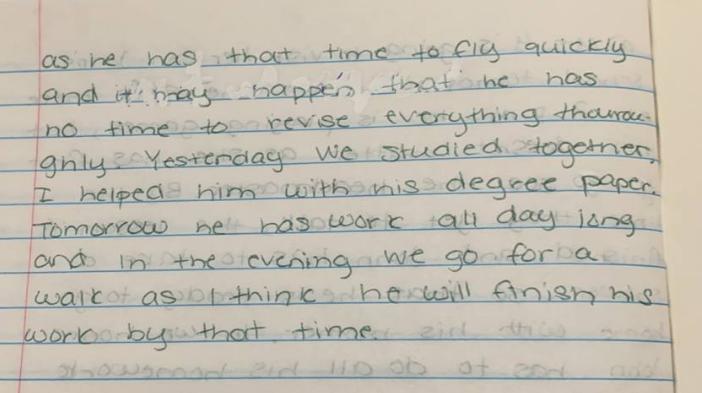 as he has that time to fly quickly
and it may happen that he has
no time to revise everything thourou-
ghly. Yesterday we studied together,
I helped him with his degree paper.
Tomorrow he has work all day long
and in the evening we go for a
walk as I think he will finish his
work by that time.